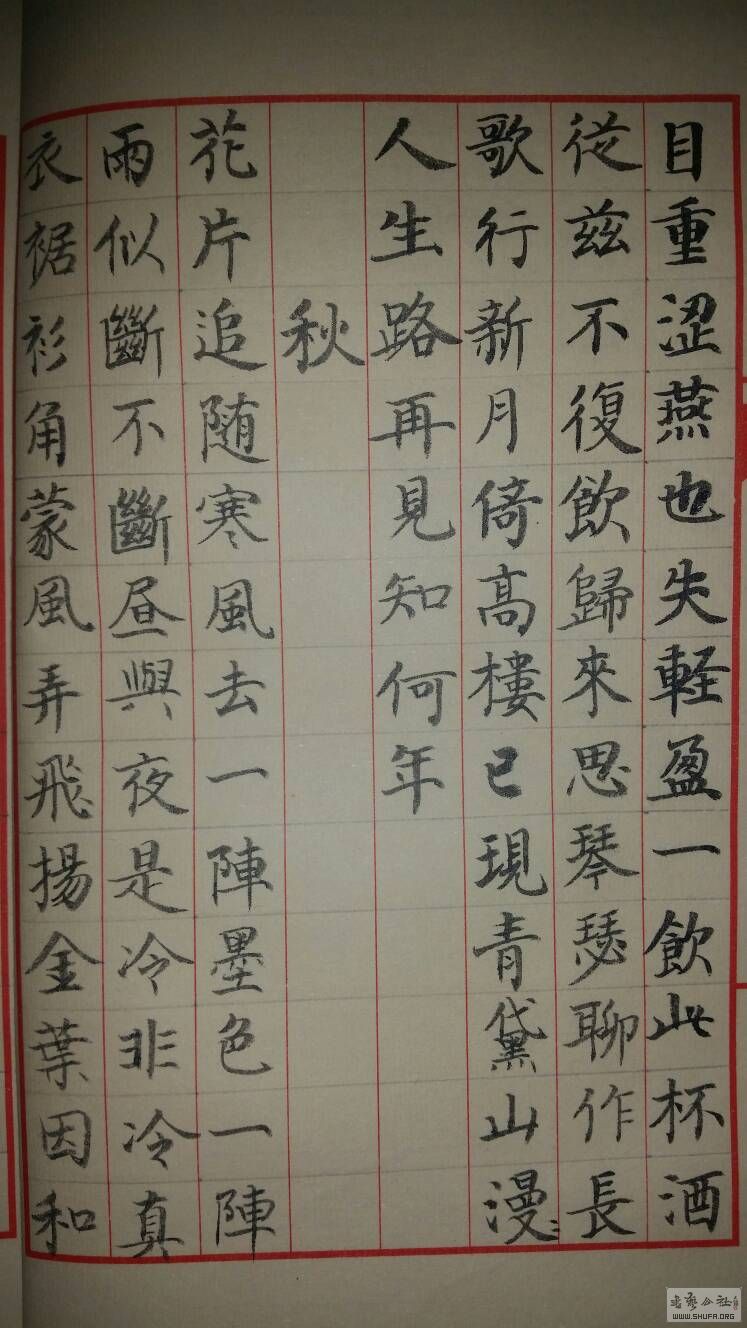 目重涩燕也失軽盈一飲此杯酒
從兹不復飲歸來思琴瑟聊作長
歌行新月倚高樓已現青黛山漫〻
人生路再見知何年
秋
花片追随寒風去一陣墨色一陣
雨似斷不斷昼與夜是冷非冷真
衣裾衫角蒙風弄飛揚金葉因和
WWW.SHUFA.ORG